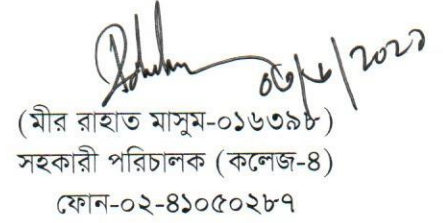 (মীর রাহাত মাসুম-০১৬৩৯৮)
সহকারী পরিচালক (কলেজ-৪)
ফোন-০২-৪১০৫০২৮৭